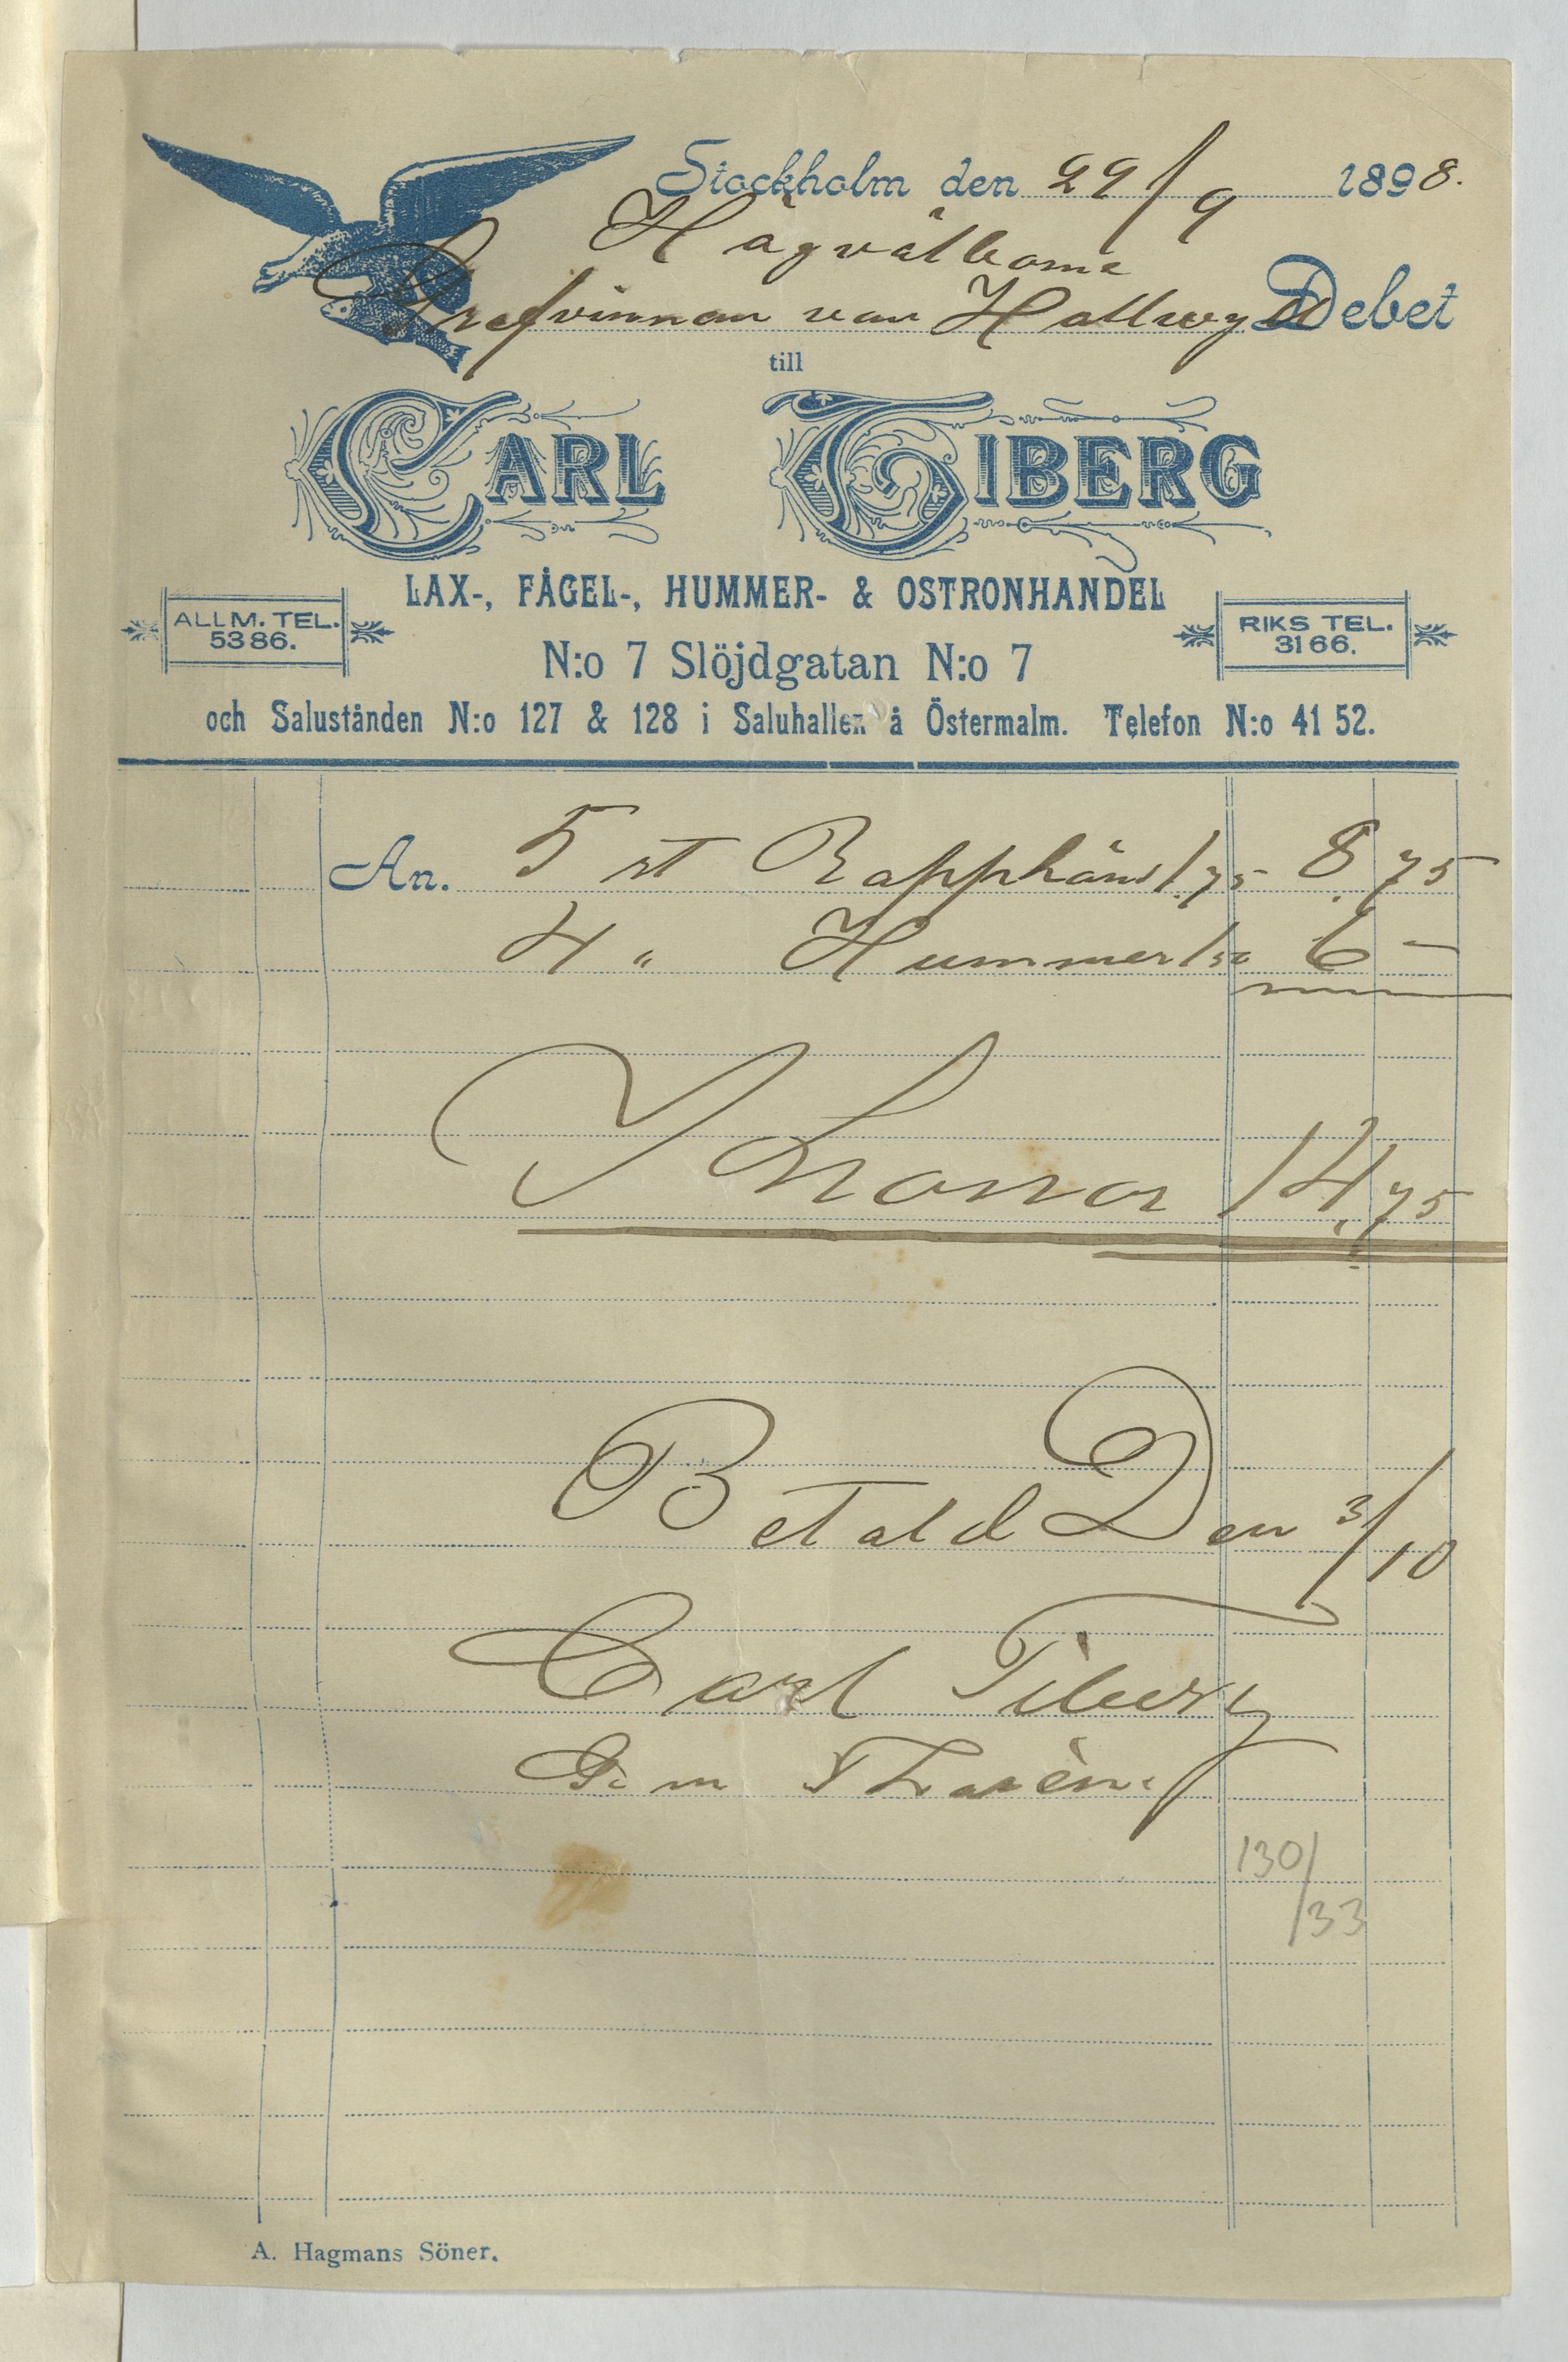 Stockholm den 29/9 1898.
Högvälborna
Grefvinnan von Hallwyl Debet
till
CARL TIBERG
LAX-, FÅGEL-, HUMMER- & OSTRONHANDEL
ALLM. TEL. 5386.
RIKS TEL. 3166.
N:o 7 Slöjdgatan N:o 7
och Salustånden N:o 127 & 128 i Saluhallen å Östermalm. Telefon N:o 41 52.
An. 5 st Rapphöns 1.75 8.75
4 " Hummer 1.50 6 —
Kronor 14.75
Betald Den 3/10
Carl Tiberg
Gm
130/33
A. Hagmans Söner.